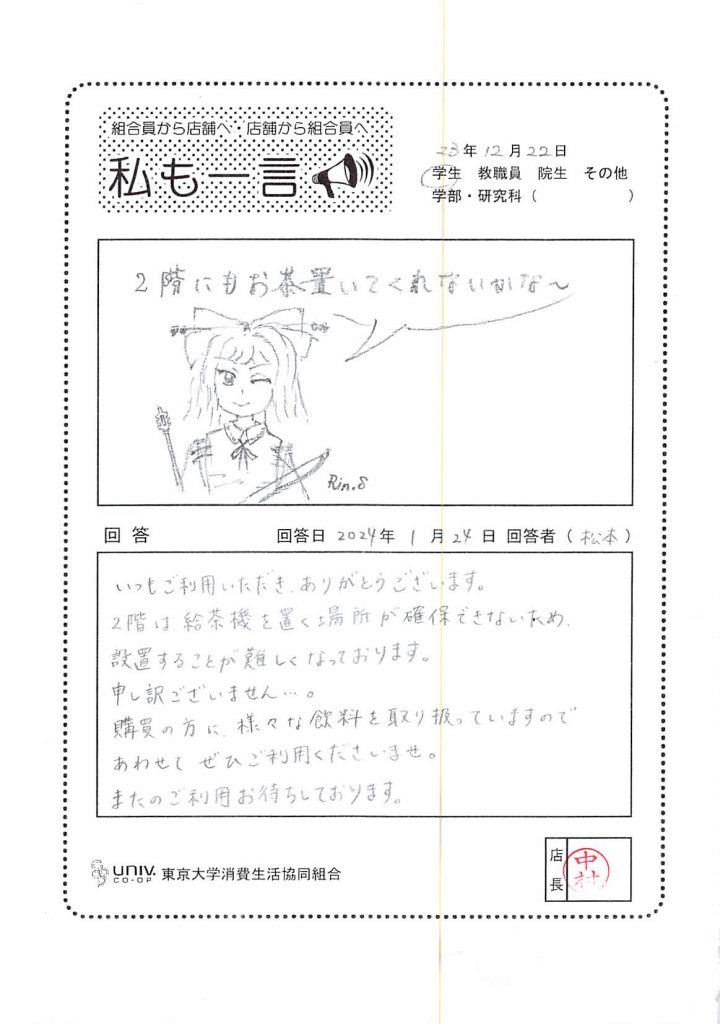 組合員から店舗へ・店舗から組合員へ
私も一言
23年12月22日
学生 教職員 院生 その他
学部・研究科（ ）
2階にもお茶置いてくれないかな〜
Rin.S
回答 回答日 2024年 1月24日 回答者（松本）
いつもご利用いただき、ありがとうございます。
2階は、給茶機を置く場所が確保できないため、
設置することが難しくなっております。
申し訳ございません…。
購買の方に、様々な飲料を取り扱っていますので
あわせて ぜひご利用くださいませ。
またのご利用お待ちしております。
UNIV. CO-OP 東京大学消費生活協同組合
店長 中村